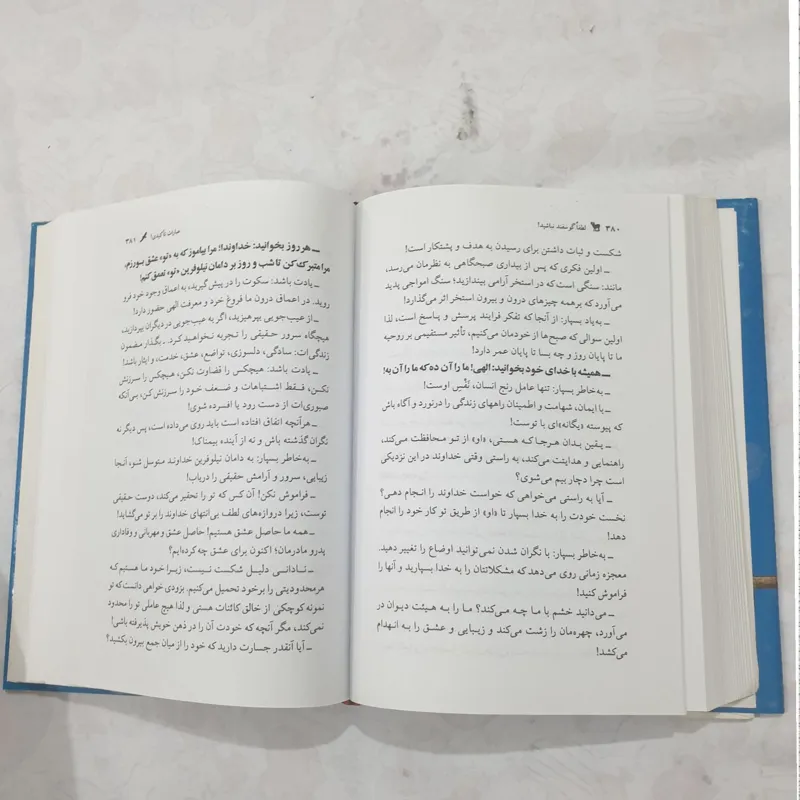 ۳۸۰ لطفاً گوسفند نباشید!
شکست و ثبات داشتن برای رسیدن به هدف و پشتکار است!
ـ اولین فکری که پس از بیداری صبحگاهی به نظرمان می‌رسد،
مانند: سنگی است که در استخر آرامی بیندازید؛ سنگ امواجی پدید
می‌آورد که بر همه چیزهای درون و بیرون استخر اثر می‌گذارد!
ـ به‌یاد بسپار: از آنجا که تفکر فرایند پرسش و پاسخ است، لذا
اولین سوالی که صبح‌ها از خودمان می‌کنیم، تأثیر مستقیمی بر روحیه
ما تا پایان روز و چه بسا تا پایان عمر دارد!
ـ همیشه با خدای خود بخوانید: الهی! ما را آن ده که ما را آن به!
ـ به‌خاطر بسپار: تنها عامل رنج انسان، نَفْسِ اوست!
ـ با ایمان، شهامت و اطمینان راههای زندگی را درنورد و آگاه باش
که پیوسته «یگانه»ای با توست!
ـ یقین بدان هرجا که هستی، «او» از تو محافظت می‌کند،
راهنمایی و هدایتت می‌کند، به راستی وقتی خداوند در این نزدیکی
است چرا دچار بیم می‌شوی؟
ـ آیا به راستی می‌خواهی که خواست خداوند را انجام دهی؟
نخست خودت را به خدا بسپار تا «او» از طریق تو کار خود را انجام
دهد!
ـ به‌خاطر بسپار: با نگران شدن نمی‌توانید اوضاع را تغییر دهید.
معجزه زمانی روی می‌دهد که مشکلاتتان را به خدا بسپارید و آنها را
فراموش کنید!
ـ می‌دانید خشم با ما چه می‌کند؟ ما را به هیئت دیوان در
می‌آورد، چهره‌مان را زشت می‌کند و زیبایی و عشق را به انهدام
می‌کشد!
عبارات تأکیدی! ۳۸۱
ـ هر روز بخوانید: خداوندا! مرا بیاموز که به «تو» عشق بورزم،
مرا متبرک کن تا شب و روز بر دامان نیلوفرین «تو» تعمق کنم!
ـ یادت باشد: سکوت را در پیش گیرید، به اعماق وجود خود فرو
روید. در اعماق درون ما فروغ خرد و معرفت الهی حضور دارد!
ـ از عیب‌جویی بپرهیزید، اگر به عیب‌جویی در دیگران بپردازید،
هیچگاه سرور حقیقی را تجربه نخواهید کرد. ـ بگذار مضمون
زندگی‌ات: سادگی، دلسوزی، تواضع، عشق، خدمت، و ایثار باشد!
ـ یادت باشد: هیچکس را قضاوت نکن، هیچکس را سرزنش
نکن، فقط اشتباهات و ضعف خود را سرزنش کن، بی‌آنکه
صبوری‌ات از دست رود یا افسرده شوی!
ـ هرآنچه اتفاق افتاده است باید روی می‌داده است، پس دیگر نه
نگران گذشته باش و نه از آینده بیمناک!
ـ به‌خاطر بسپار: به دامان نیلوفرین خداوند متوسل شو، آنجا
زیبایی، سرور و آرامش حقیقی را دریاب!
ـ فراموش نکن! آن کس که تو را تحقیر می‌کند، دوست حقیقی
توست، زیرا دروازه‌های لطف، بی‌انتهای خداوند را بر تو می‌گشاید!
ـ همه ما حاصل عشق هستیم! حاصل عشق و مهربانی و وفاداری
پدرو مادرمان؛ اکنون برای عشق چه کرده‌ایم؟
ـ نادانی دلیل شکست نیست، زیرا خود ما هستیم که
هر محدودیتی را برخود تحمیل می‌کنیم. بزودی خواهی دانست که تو
نمونه کوچکی از خالق کائنات هستی و لذا هیچ عاملی تو را محدود
نمی‌کند، مگر آنچه که خودت آن را در ذهن خویش پذیرفته باشی!
ـ آیا آنقدر جسارت دارید که خود را از میان جمع بیرون بکشید؟